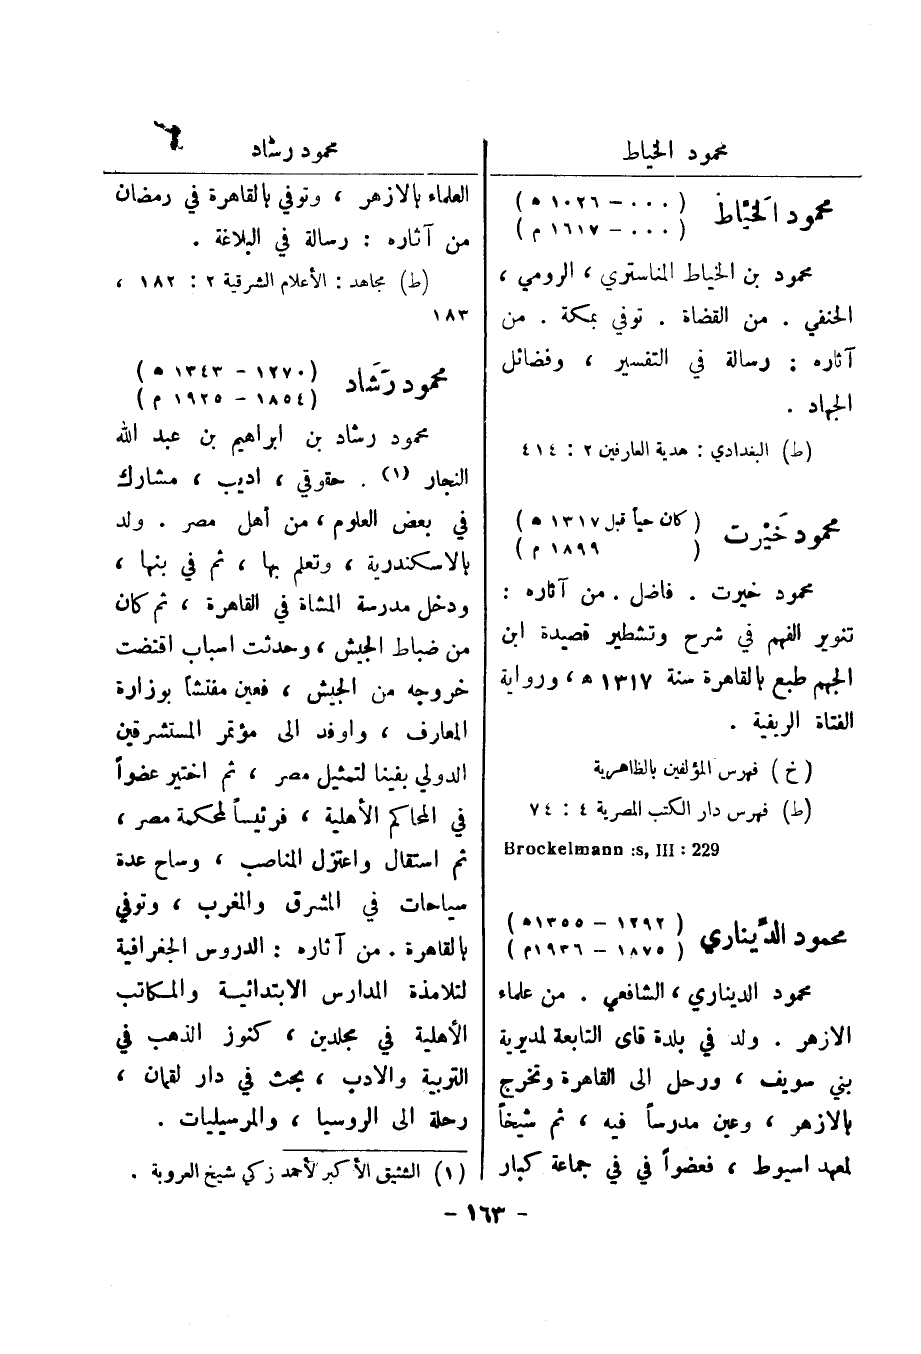 محمود الخياط
محمود الخَيَّاط
( ٠٠٠ – ١٠٢٦ ه )
( ٠٠٠ – ١٦١٧ م )
محمود بن الخياط المناستري ، الرومي ،
الحنفي . من القضاة . توفي بمكة . من
آثاره : رسالة في التفسير ، وفضائل
الجهاد .
(ط) البغدادي : هدية العارفين ٢ : ٤١٤
محمود خَيْرت
( كان حياً قبل ١٣١٧ ه )
( ١٨٩٩ م )
محمود خيرت . فاضل . من آثاره :
تنوير الفهم في شرح وتشطير قصيدة ابن
الجهم طبع بالقاهرة سنة ١٣١٧ ه ، ورواية
الفتاة الريفية .
( خ ) فهرس المؤلفين بالظاهرية
(ط) فهرس دار الكتب المصرية ٤ : ٧٤
Brockelmann :s, III : 229
محمود الدِّيناري
( ١٢٩٢ – ١٣٥٥ه )
( ١٨٧٥ – ١٩٣٦م )
محمود الديناري ، الشافعي . من علماء
الازهر . ولد في بلدة قاى التابعة لمديرية
بني سويف ، ورحل الى القاهرة وتخرج
بالازهر ، وعين مدرساً فيه ، ثم شيخاً
لمعهد اسيوط ، فعضواً في في جماعة كبار
محمود رشاد
العلماء بالازهر ، وتوفي بالقاهرة في رمضان
من آثاره : رسالة في البلاغة .
(ط) مجاهد : الأعلام الشرقية ٢ : ١٨٢ ،
١٨٣
محمود رَشَاد
( ١٢٧٠ – ١٣٤٣ ه )
( ١٨٥٤ – ١٩٢٥ م )
محمود رشاد بن ابراهيم بن عبد الله
النجار (١) . حقوقي ، اديب ، مشارك
في بعض العلوم ، من أهل مصر . ولد
بالاسكندرية ، وتعلم بها ، ثم في بنها ،
ودخل مدرسة المشاة في القاهرة ، ثم كان
من ضباط الجيش ، وحدثت اسباب اقتضت
خروجه من الجيش ، فعين مفتشاً بوزارة
المعارف ، واوفد الى مؤتمر المستشرقين
الدولي بفينا لتمثيل مصر ، ثم اختير عضواً
في المحاكم الأهلية ، فرئيساً لمحكمة مصر ،
ثم استقال واعتزل المناصب ، وساح عدة
سياحات في المشرق والمغرب ، وتوفي
بالقاهرة . من آثاره : الدروس الجغرافية
لتلامذة المدارس الابتدائية والمكاتب
الأهلية في مجلدين ، كنوز الذهب في
التربية والادب ، بحث في دار لقمان ،
رحلة الى الروسيا ، والمرسيليات .
(١) الشقيق الأكبر لأحمد زكي شيخ العروبة .
- ١٦٣ -